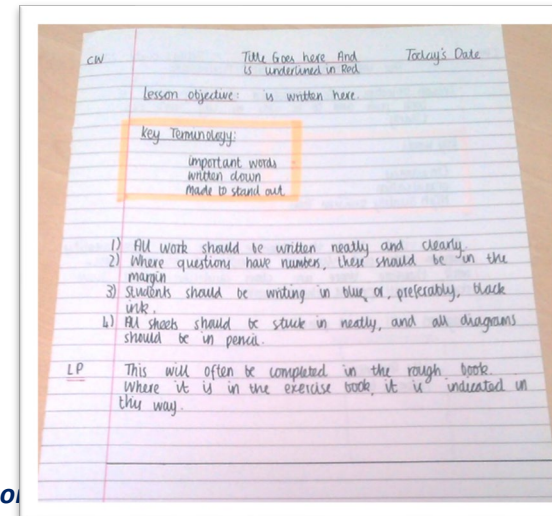 CW Title Goes here And Today's Date
is underlined in Red
Lesson objective: is written here.
Key Terminology:
important words
written down
Made to stand out
1) All work should be written neatly and clearly.
2) Where questions have numbers, these should be in the
margin
3) Students should be writing in blue, or, preferably, black
ink.
4) All sheets should be stuck in neatly, and all diagrams
should be in pencil.
LP This will often be completed in the rough book.
Where it is in the exercise book, it is indicated in
this way.